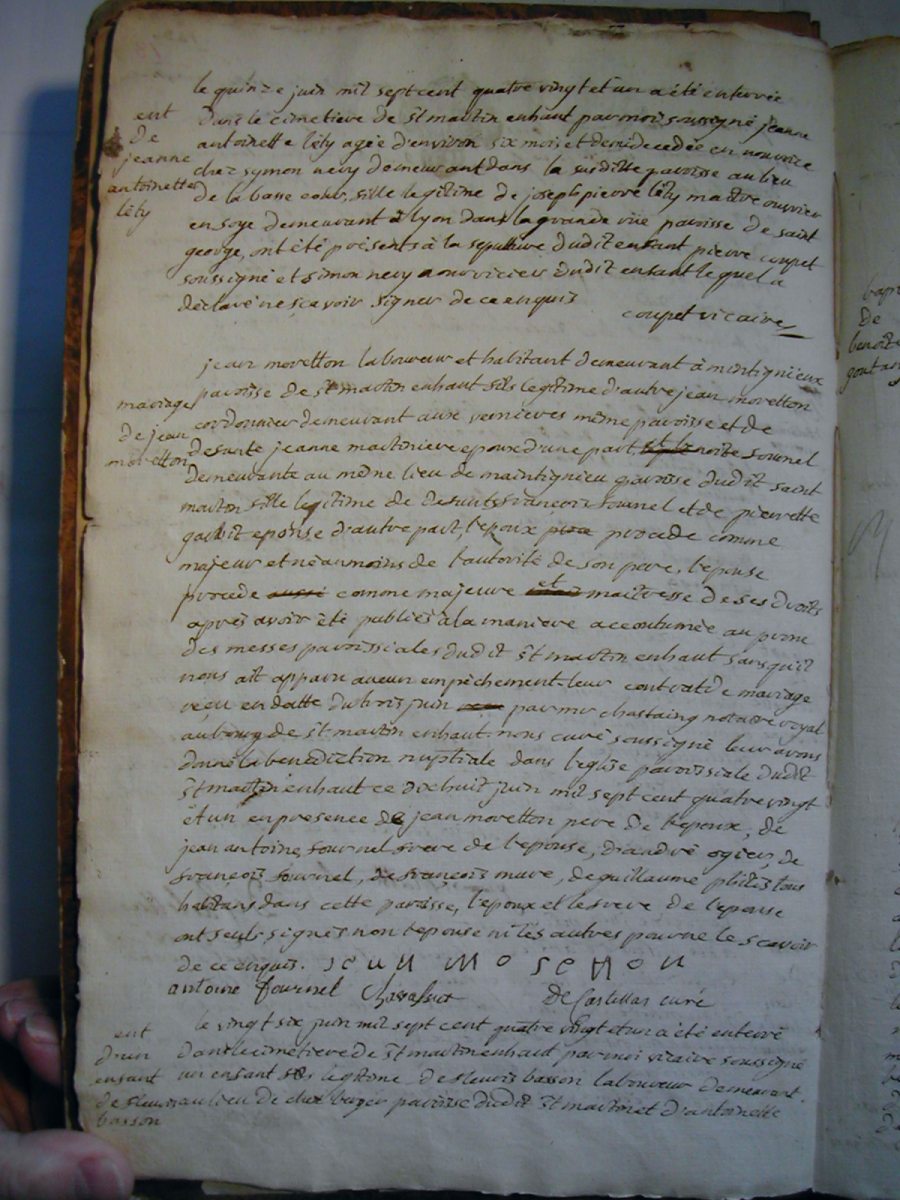 le quinze juin mil sept cent quatre vingt et un a été enterrée
ent
de
jeanne
antoinette
lély
dans le cimetiere de st martin enhaut par moi soussigné jeanne
antoinette lély agée d'environ six mois et demi decedée en nourice
chez symon nevy demeurant dans la susditte paroisse au lieu
de la basse cour, fille legitime de joseph pierre lély maitre ouvrier
en soye demeurant à lyon dans la grande rüe paroisse de saint
george, ont été présents à la sepulture dudit enfant pierre coupet
soussigné et simon nevy nourricier dudit enfant lequel a
déclaré ne sçavoir signer de ce enquis
coupet vicaire
mariage
de jean
moretton
jean moretton laboureur et habitant demeurant à mintignieux
paroisse de st martin enhaut fils legitime d'autre jean moretton
cordonnier demeurant aux vernieres même paroisse et de
defunte jeanne martiniere epoux d'une part, benoite fournel
demeurante au même lieu de maintignieu paroisse dudit saint
martin fille legitime de defunts françois fournel et de pierrette
epouse d'autre part, l'epoux procede comme
majeur et néanmoins de l'autorité de son pere, l'epouse
procede aussi comme majeure et maitresse de ses droits
après avoir été publiés à la maniere accoutumée au prone
des messes paroissiales dudit st martin enhaut sans qu'il
nous ait apparu aucun empêchement leur contrat de mariage
reçu en datte du trois juin par mr chastaing notaire royal
au bourg de st martin enhaut nous curé soussigné leur avons
donné la benediction nuptiale dans l'eglise paroissiale dudit
st martin enhaut ce dix huit juin mil sept cent quatre vingt
et un en presence de jean moretton pere de l'epoux, de
jean antoine fournel frere de l'epouse, d'andré ogier, de
françois fournel, de françois mure, de guillaume tous
habitans dans cette paroisse, l'epoux et le frere de l'epouse
ont seuls signés non l'epouse ni les autres pour ne le scavoir
de ce enquis. jean moreton
antoine fournel de Castillas curé
ent
d'un
enfant
de fleuris
basson
le vingt six juin mil sept cent quatre vingt et un a été enterré
dans le cimetiere de st martin enhaut par moi vicaire soussigné
un enfant fils legitime de fleuris basson laboureur demeurant
au lieu de chez berger paroisse dudit st martin et d'antoinette
bapt
de
benoit